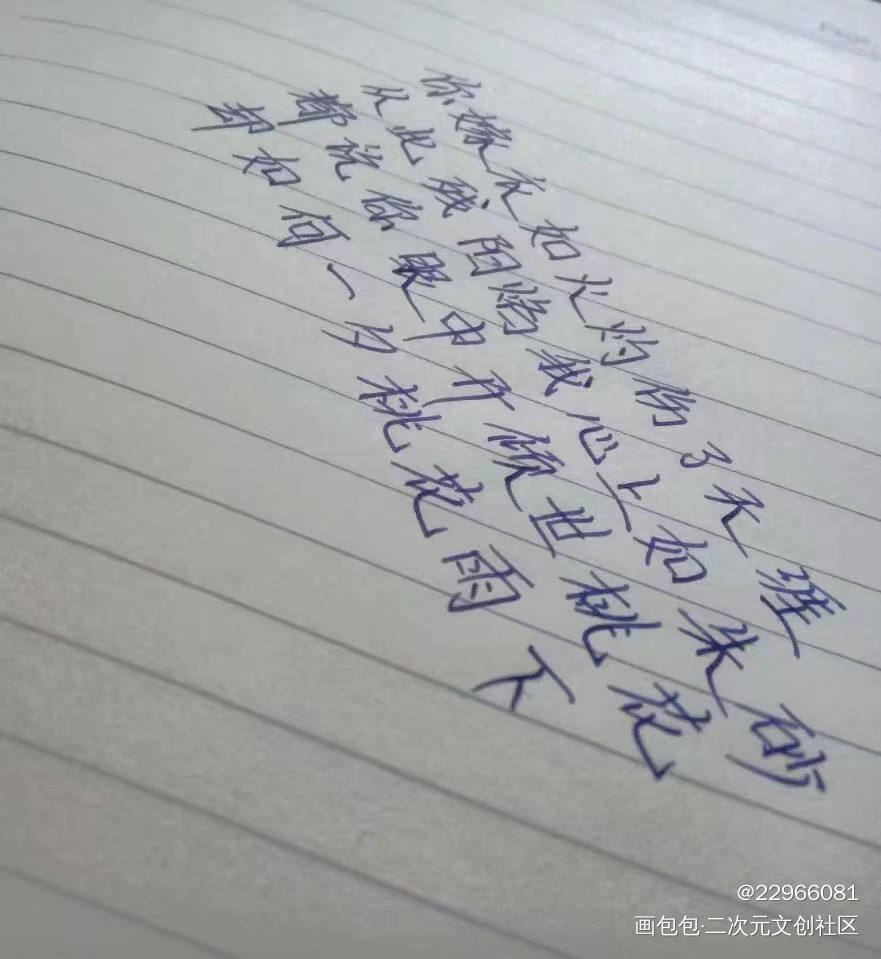 你嫁衣如火灼伤了天涯
从此残阳烙我心上如朱砂
都说你眼中开倾世桃花
却如何一夕桃花雨下
@22966081
画包包·二次元文创社区